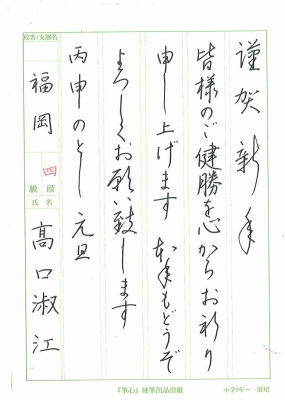 謹賀新年
皆様のご健勝を心からお祈り
申し上げます 本年もどうぞ
よろしくお願い致します
丙申のとし 元旦
校名・支部名
福岡
四
級 段
氏名
高口淑江
『筆心』硬筆出品用紙
小学3年～一般用